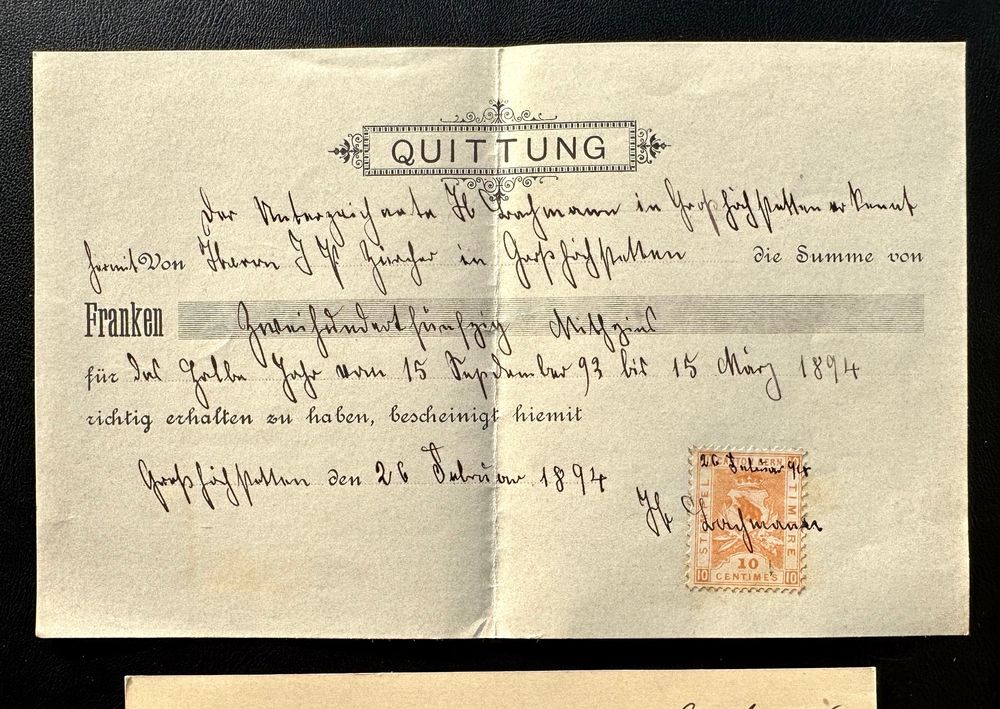 QUITTUNG
Der Unterzeichnete Bachmann in Großhöchstetten erkennt
hermit Von Herrn J Zürcher in Großhöchstetten die Summe von
Franken Zweihundertfünfzig Mithzins
für das Halbe Jahr vom 15 September 93 bis 15 März 1894
richtig erhalten zu haben, bescheinigt hiemit
Großhöchstetten den 26 Februar 1894
Bachmann
KANTON BERN
26 Februar 94
STEMPEL
TIMBRE
10
10 CENTIMES 10